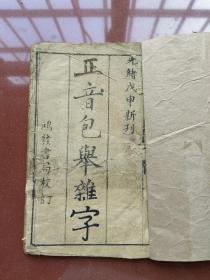 光緒戊申新刊
正音包舉雜字
鴻發書局校訂